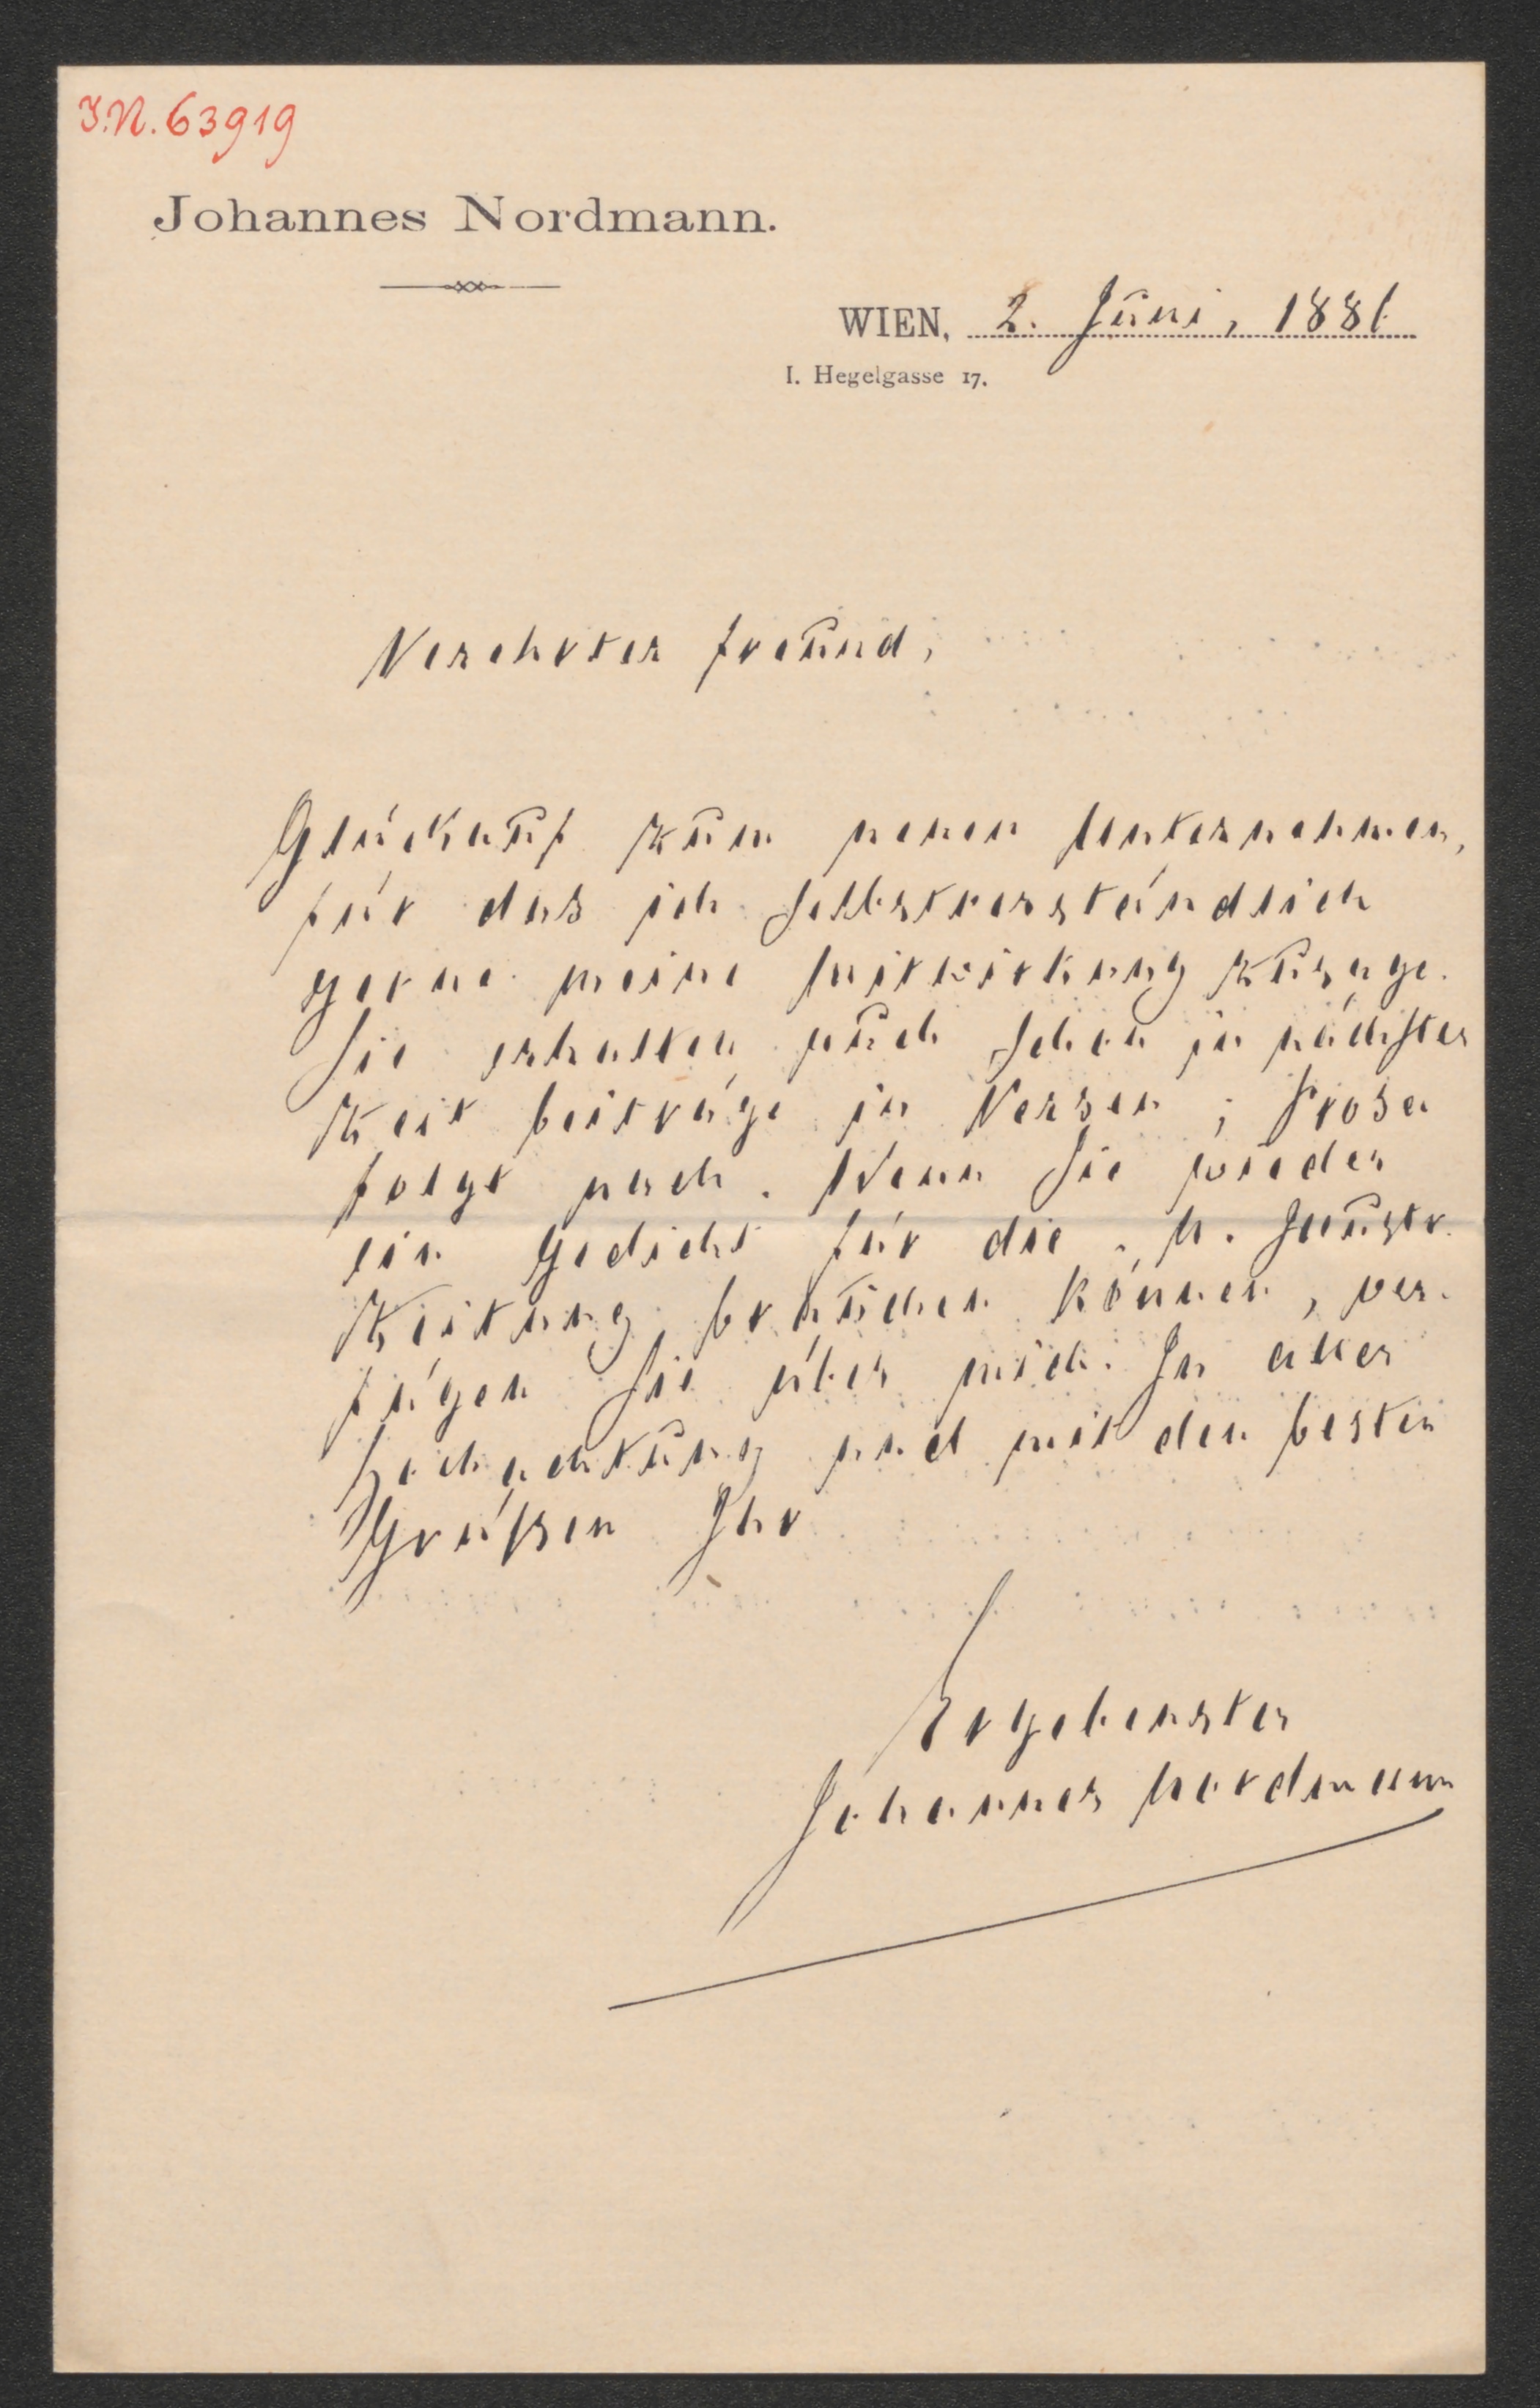 I.N. 63919
Johannes Nordmann.
WIEN, 2. Juni, 1886
I. Hegelgasse 17.
Verehrter Freund,
Glückauf zum neuen Unternehmen,
für das ich selbstverständlich
gerne meine Mitwirkung zusage.
Sie erhalten auch schon in nächster
Zeit Beiträge in Versen; Prosa
folgt nach. Wenn Sie wieder
ein Gedicht für die N. Illustr.
Zeitung brauchen können, ver-
fügen Sie über mich. In aller
Hochachtung und mit den besten
Grüßen Ihr
Ergebenster
Johannes Nordmann